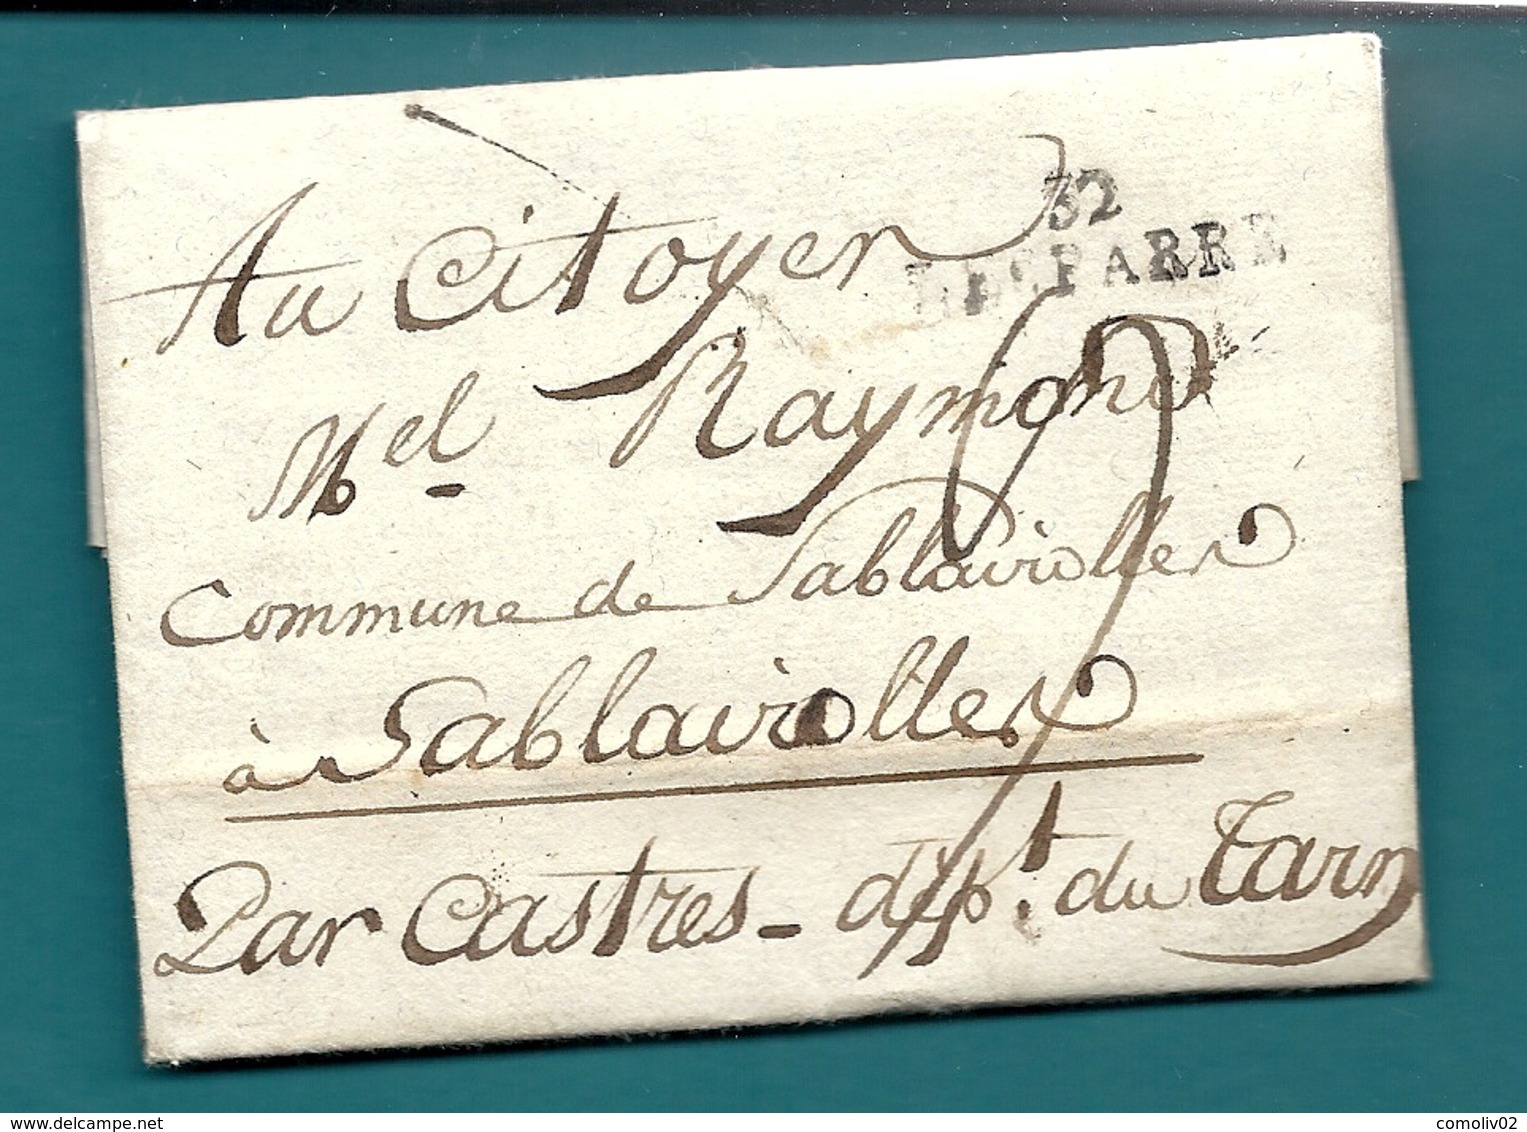 Au Citoyen
32
LESPARRE
Mel Raymond
9
Commune de Sablairolles
à Sablairolles
Par Castres - dépt. du Tarn
delcampe.net
comoliv02